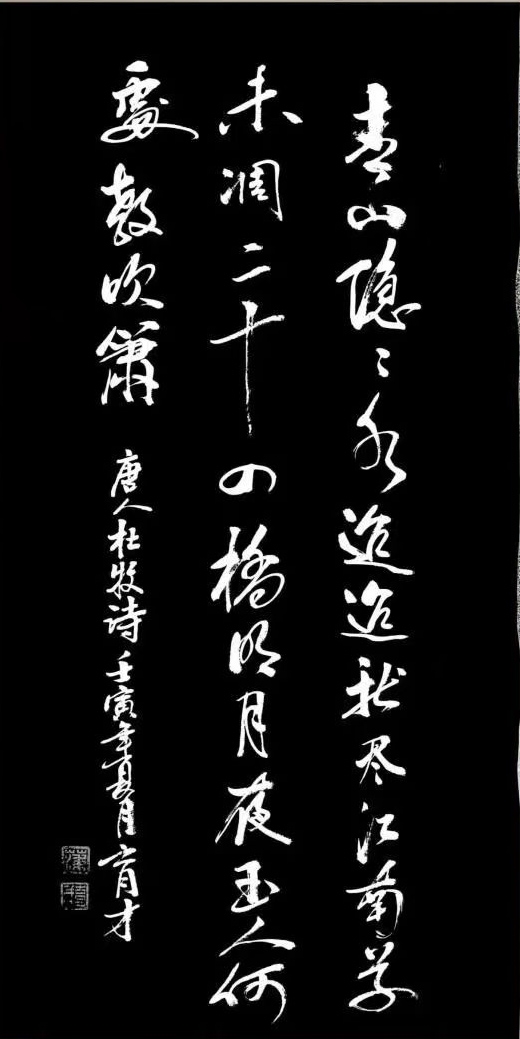 青山隐〻水迢迢秋尽江南草
未凋二十四橋明月夜玉人何
處教吹箫
唐人杜牧诗壬寅年夏月育才